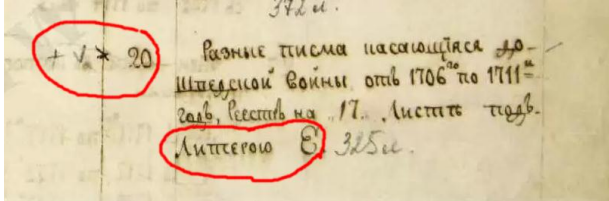 372 л.
+ V * 20 Разные писма касающїяся до-
Шведской войны отъ 1706го по 1711й
годъ, Реестръ на 17. Листѣ подъ.
Литерою Є. 325 л.